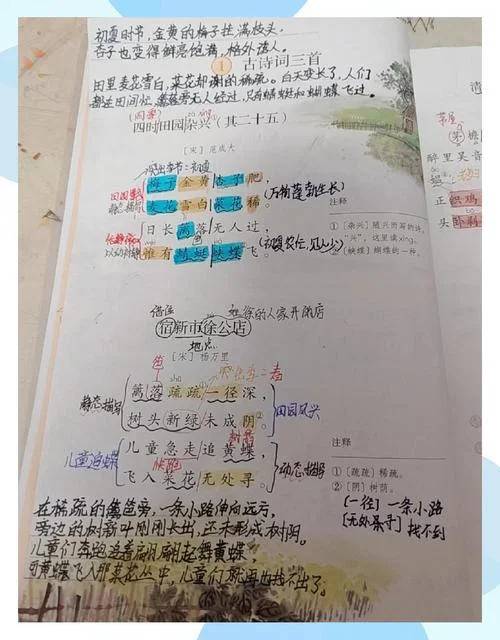 初夏时节，金黄的梅子挂满枝头，
杏子也变得鲜亮饱满，格外诱人。
1 古诗词三首
田里麦花雪白，菜花却谢的稀疏。白天变长了，人们
都在田间忙，篱落旁无人经过，只有蜻蜓和蝴蝶飞过。
(四季) xìng
四时田园杂兴（其二十五）
[宋] 范成大
突出季节：初夏
梅子金黄杏子肥，
麦花雪白菜花稀。
(万物蓬勃生长)
静态描写
日长篱落无人过，
惟有蜻蜓蛱蝶飞。
(初夏农忙，见人少)
注释
①〔杂兴〕随兴而写的诗。
“兴”，这里读xìng。
②〔蛱蝶〕蝴蝶的一种。
借住 姓徐的人家开的店
宿新市徐公店
地点
[宋] 杨万里
篱落疏疏一径深，
树头新绿未成阴。
静态描写
田园风光
树荫
儿童急走追黄蝶，
飞入菜花无处寻。
儿童追蝶
快跑
动态描写
注释
①〔疏疏〕稀疏。
②〔阴〕树荫。
[一径] 一条小路
[无处寻] 找不到
在稀疏的篱笆旁，一条小路伸向远方，
旁边的树新叶刚刚长出，还未形成树阴。
儿童们奔跑追着翩翩起舞黄蝶，
可黄蝶飞入那菜花丛中，儿童们就再也找不出了。
清
茅屋
(茅)檐
醉里吴音
正织鸡
头卧剥